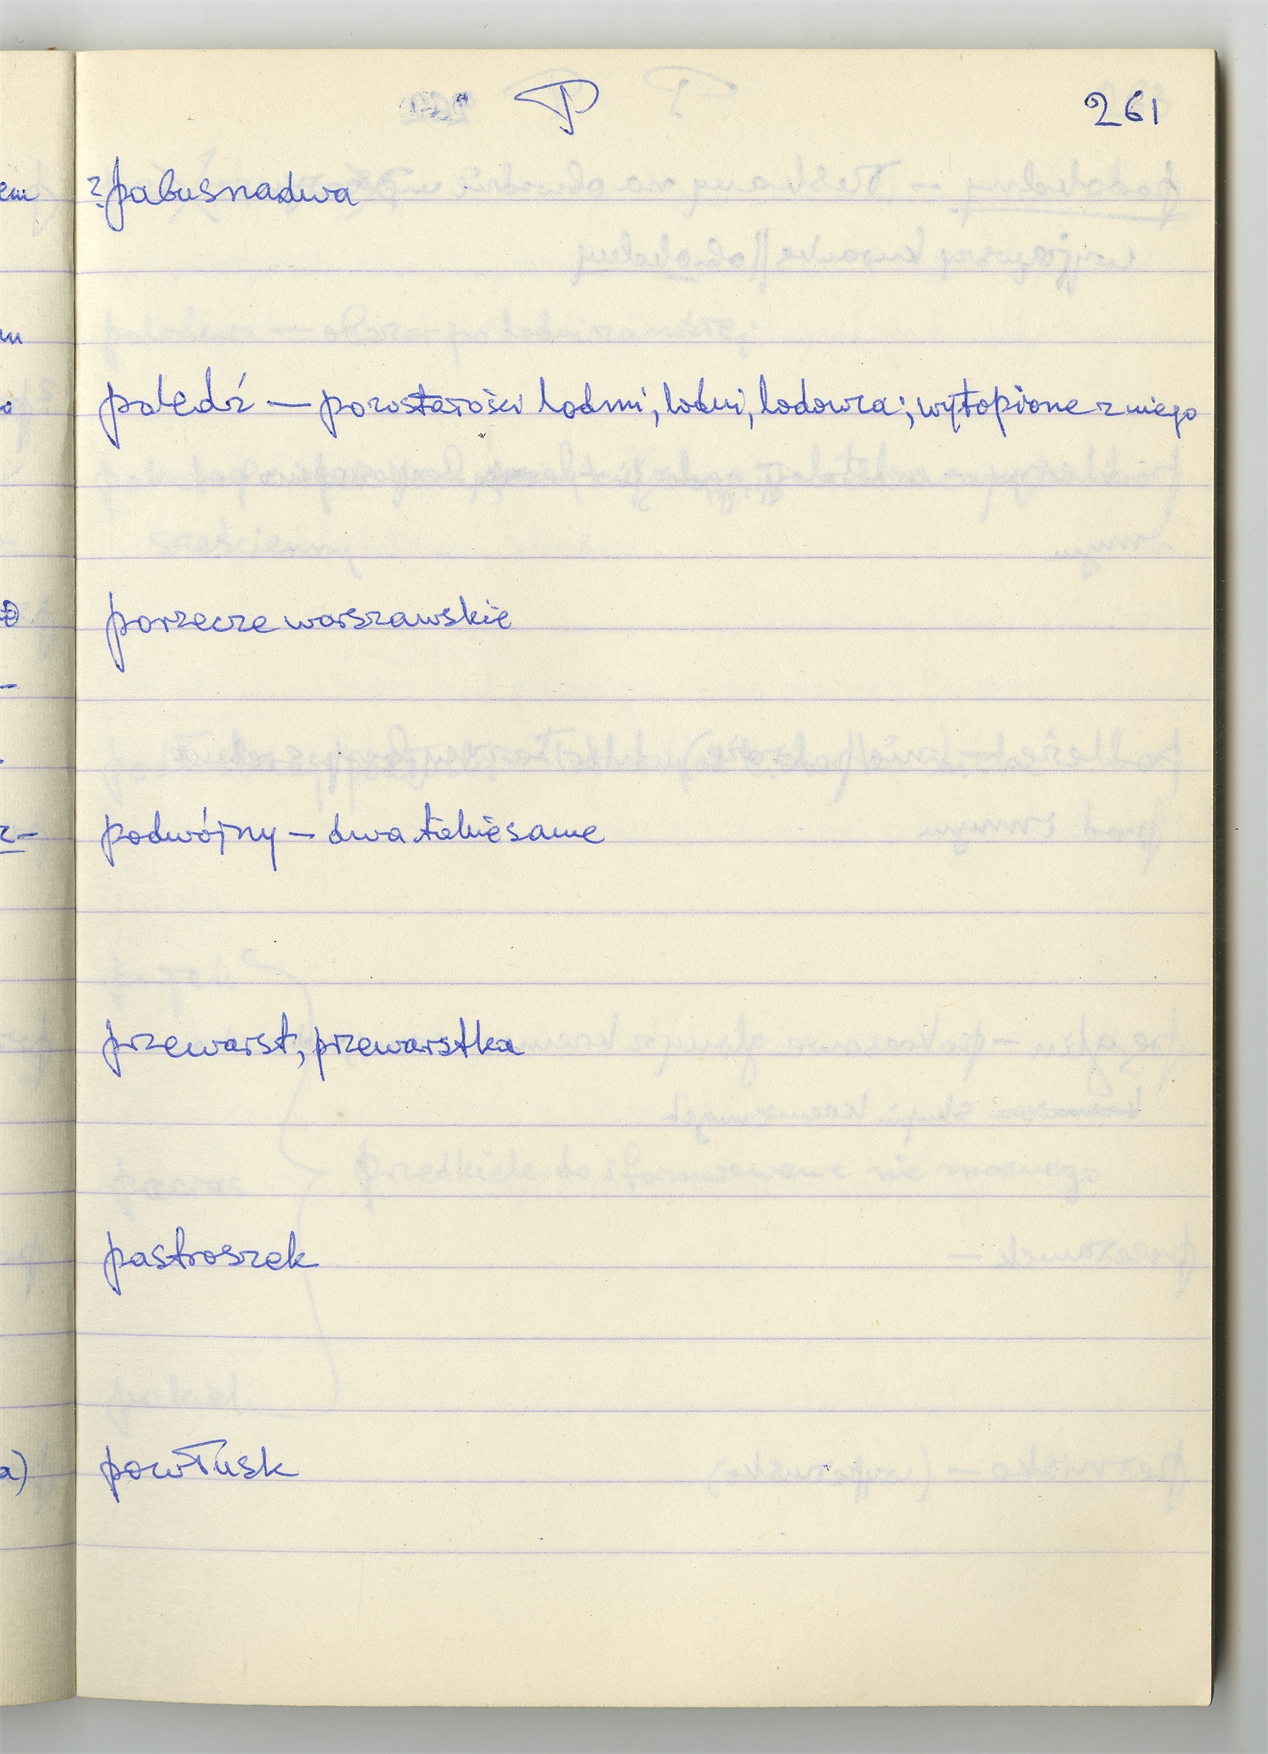 P 261
? pabusnadwa
poledź — pozostałości lodmi, lodni, lodowca; wytopione z niego
porzecze warszawskie
podwójny — dwa takie same
przewarst, przewarstka
pastroszek
powłusk